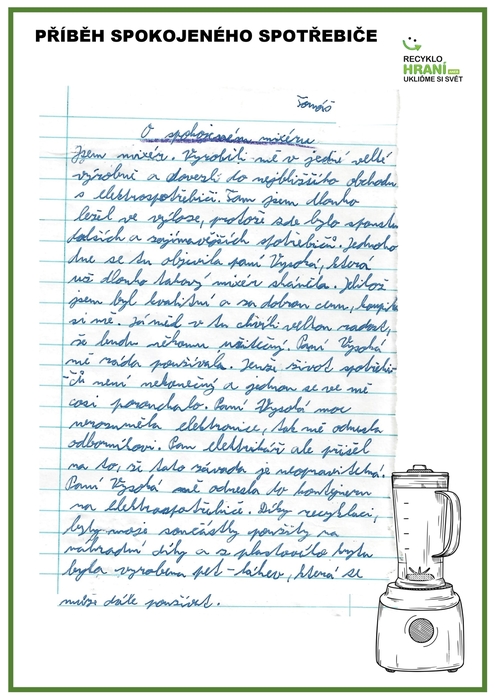 PŘÍBĚH SPOKOJENÉHO SPOTŘEBIČE
RECYKLO
HRANÍ
UKLIĎME SI SVĚT
Tomáš
O spokojeném mixéru
Jsem mixér. Vyrobili mě v jedné velké
výrobně a dovezli do nejbližšího obchodu
s elektrospotřebiči. Tam jsem dlouho
ležel ve výloze, protože zde bylo spoustu
dalších a zajímavějších spotřebičů. Jednoho
dne se tu objevila paní Vysoká, která
už dlouho takový mixér sháněla. Jelikož
jsem byl kvalitní a za dobrou cenu, koupila
si mě. Já měl v tu chvíli velkou radost,
že budu někomu užitečný. Paní Vysoká
mě ráda používala. Jenže život spotřebi-
čů není nekonečný a jednou se ve mě
cosi porouchalo. Paní Vysoká moc
nerozuměla elektronice, tak mě odnesla
odborníkovi. Pan elektrikář ale přišel
na to, si tato závada je neopravitelná.
Paní Vysoká mě odnesla do kontejneru
na elektrospotřebiče. Díky recyklaci,
byly moje součástky použity na
náhradní díly a z plastového krytu
byla vyrobena pet-láhev, která se
může dále používat.